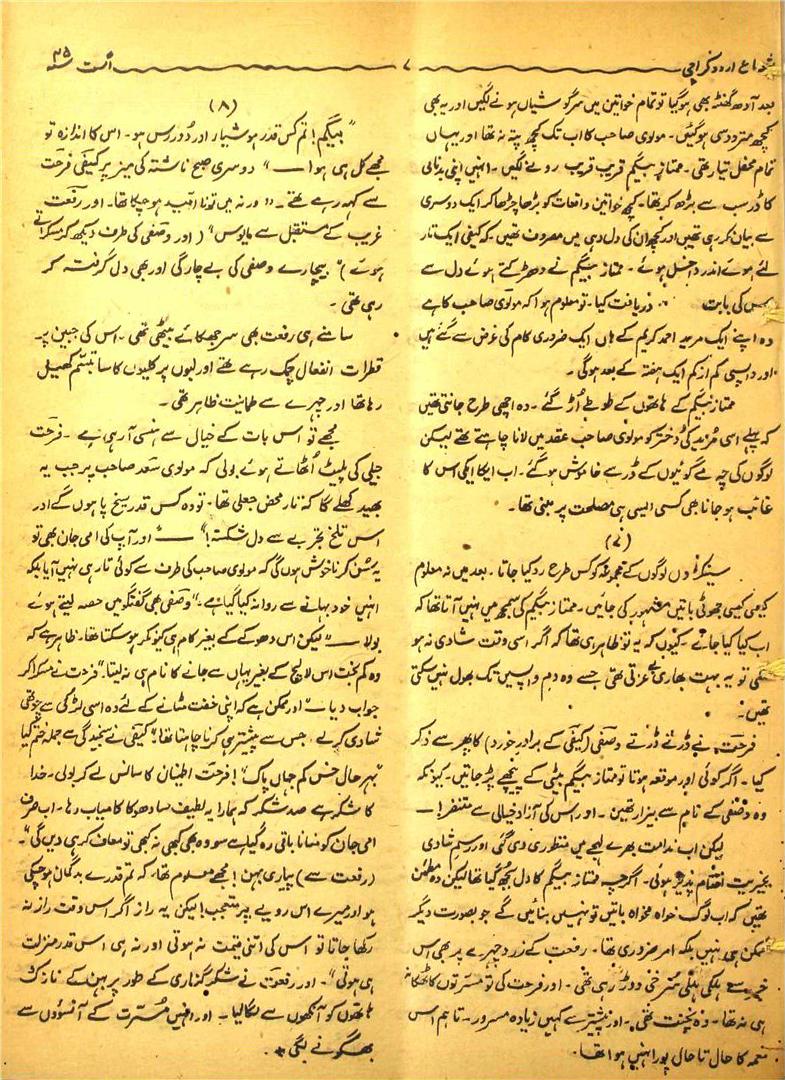 شعاع اردو کراچی ۷ اگست ۳۵ سنہ
بعد آدھ گھنٹہ بھی ہوگیا تو تمام خواتین میں سرگوشیاں ہونے لگیں اور یہ بھی
کچھ متردد سی ہوگئیں۔ مولوی صاحب کا اب تک کچھ پتہ نہ تھا اور یہاں
تمام محفل تیار تھی۔ ممتاز بیگم قریب قریب رونے لگیں۔ انہیں اپنی بدنامی
کا ڈر سب سے بڑھ کر تھا۔ کچھ خواتین واقعات کو بڑھا چڑھا کر ایک دوسری
سے بیان کر رہی تھیں اور کچھ ان کی دل دہی میں مصروف تھیں کہ کیفی ایک تار
لئے ہوئے اندر داخل ہوئے۔ ممتاز بیگم نے دھڑکتے ہوئے دل سے
اس کی بابت دریافت کیا۔ تو معلوم ہوا کہ مولوی صاحب کا ہے
وہ اپنے ایک مرید احمد کریم کے ہاں ایک ضروری کام کی غرض سے گئے ہیں
اور واپسی کم از کم ایک ہفتہ کے بعد ہوگی۔
ممتاز بیگم کے ہاتھوں کے طوطے اُڑ گئے۔ وہ اچھی طرح جانتی تھیں
کہ پہلے اسی مُرید کی دُختر کو مولوی صاحب عقد میں لانا چاہتے تھے لیکن
لوگوں کی چہ مے گوئیوں کے ڈر سے خاموش ہوگئے۔ اب ایکا ایکی اس کا
غائب ہو جانا بھی کسی ایسی ہی مصلحت پر مبنی تھا۔
(۷)
سینکڑوں لوگوں کے مجموعہ کو کس طرح رد کیا جاتا۔ بعد میں نہ معلوم
کیسی کیسی جھوٹی باتیں مشہور کی جائیں۔ ممتاز بیگم کی سمجھ میں نہیں آتا تھا کہ
اب کیا کیا جائے۔ کیوں کہ یہ تو ظاہری تھا کہ اگر اسی وقت شادی نہ ہو
سکی تو یہ بہت بھاری بے عزتی تھی جسے وہ دم واپسیں تک بھول نہیں سکتی
تھیں۔
فرحت نے ڈرتے ڈرتے وصفی (کیفی کے برادر خورد) کا پھر سے ذکر
کیا۔ اگر کوئی اور موقعہ ہوتا تو ممتاز بیگم بیٹی کے پیچھے پڑ جاتیں۔ کیونکہ
وہ وصفی کے نام سے بیزار تھیں۔ اور اس کی آزاد خیالی سے متنفر! —
لیکن اب ندامت بھرے لہجے میں منظوری دی گئی اور رسم شادی
بخیریت اختتام پذیر ہوئی۔ اگرچہ ممتاز بیگم کا دل بجھ گیا تھا لیکن وہ مطمئن
تھیں کہ اب لوگ خواہ مخواہ باتیں تو نہیں بنائیں گے جو بصورت دیگر
ممکن ہی نہیں بلکہ امر ضروری تھا۔ رفعت کے زرد چہرے پر بھی اس
خبر سے ہلکی ہلکی سُرخی دوڑ رہی تھی۔ اور فرحت کی تو مسرتوں کا ٹھکانہ
ہی نہ تھا۔ وہ پُخت تھی۔ اور پیشتر سے کہیں زیادہ مسرور۔ تاہم اس
معمہ کا حال تا حال پورا نہیں ہوا تھا۔
(۸)
"بیگم! تم کس قدر ہوشیار اور دُور رس ہو۔ اس کا اندازہ تو
مجھے کل ہی ہوا—" دوسری صبح ناشتہ کی میز پر کیفی فرحت
سے کہہ رہے تھے۔ "ورنہ میں تو نا امید ہو چکا تھا۔ اور رفعت
غریب کے مستقبل سے مایوس" (اور وصفی کی طرف دیکھ کر مسکراتے
ہوئے)" بیچارے وصفی کی بے چارگی اور بھی دل گرفتہ کر
رہی تھی۔
سامنے ہی رفعت بھی سر جھکائے بیٹھی تھی۔ اس کی جبین پر
قطرات انفعال چمک رہے تھے اور لبوں پر کلیوں کا سا تبسّم کھیل
رہا تھا اور چہرے سے طمانیت ظاہر تھی۔
مجھے تو اس بات کے خیال سے ہنسی آ رہی ہے۔ فرحت
جلی کی پلیٹ اُٹھاتے ہوئے بولی کہ مولوی سعد صاحب پر جب یہ
بھید کھلے گا کہ تار محض جعلی تھا۔ تو وہ کس قدر سیخ پا ہوں گے اور
اس تلخ تجربے سے دل شکستہ!" — "اور آپ کی امی جان بھی تو
یہ سُن کر ناخوش ہوں گی کہ مولوی صاحب کی طرف سے کوئی تار ہی نہیں آیا بلکہ
انہیں خود بہانے سے روانہ کیا گیا ہے۔" وصفی بھی گفتگو میں حصہ لیتے ہوئے
بولا— "لیکن اس دھوکے کے بغیر کام ہی کیونکر ہو سکتا تھا۔ ظاہر ہے کہ
وہ کم بخت اس لالچ کے بغیر یہاں سے جانے کا نام ہی نہ لیتا۔" فرحت نے مسکرا کر
جواب دیا— "اور ممکن ہے کہ اپنی خفت مٹانے کے لئے وہ اسی لڑکی سے چوتھی
شادی کر لے۔ جس سے پیشتر ہی کرنا چاہتا تھا!" کیفی نے سنجیدگی سے جملہ ختم کیا
"بہر حال خس کم جہاں پاک"! فرحت اطمینان کا سانس لے کر بولی۔ خدا
کا شکر ہے صد شکر کہ ہمارا یہ لطیف سا دھوکا کامیاب رہا۔ اب صرف
امی جان کو منانا باقی رہ گیا ہے سو وہ بھی کبھی نہ کبھی تو معاف کر ہی دیں گی"۔
(رفعت سے) پیاری بہن! مجھے معلوم تھا کہ تم قدرے بدگمان ہو چکی
ہو اور میرے اس رویے پر متعجب! لیکن یہ راز اگر اس وقت راز نہ
رکھا جاتا تو اس کی اتنی قیمت نہ ہوتی اور نہ ہی اس قدر منزلت
ہی ہوتی"۔ اور رفعت نے شکر گزاری کے طور پر بہن کے نازک
ہاتھوں کو آنکھوں سے لگا لیا۔ اور انہیں مُسرّت کے آنسوؤں سے
بھگونے لگی۔